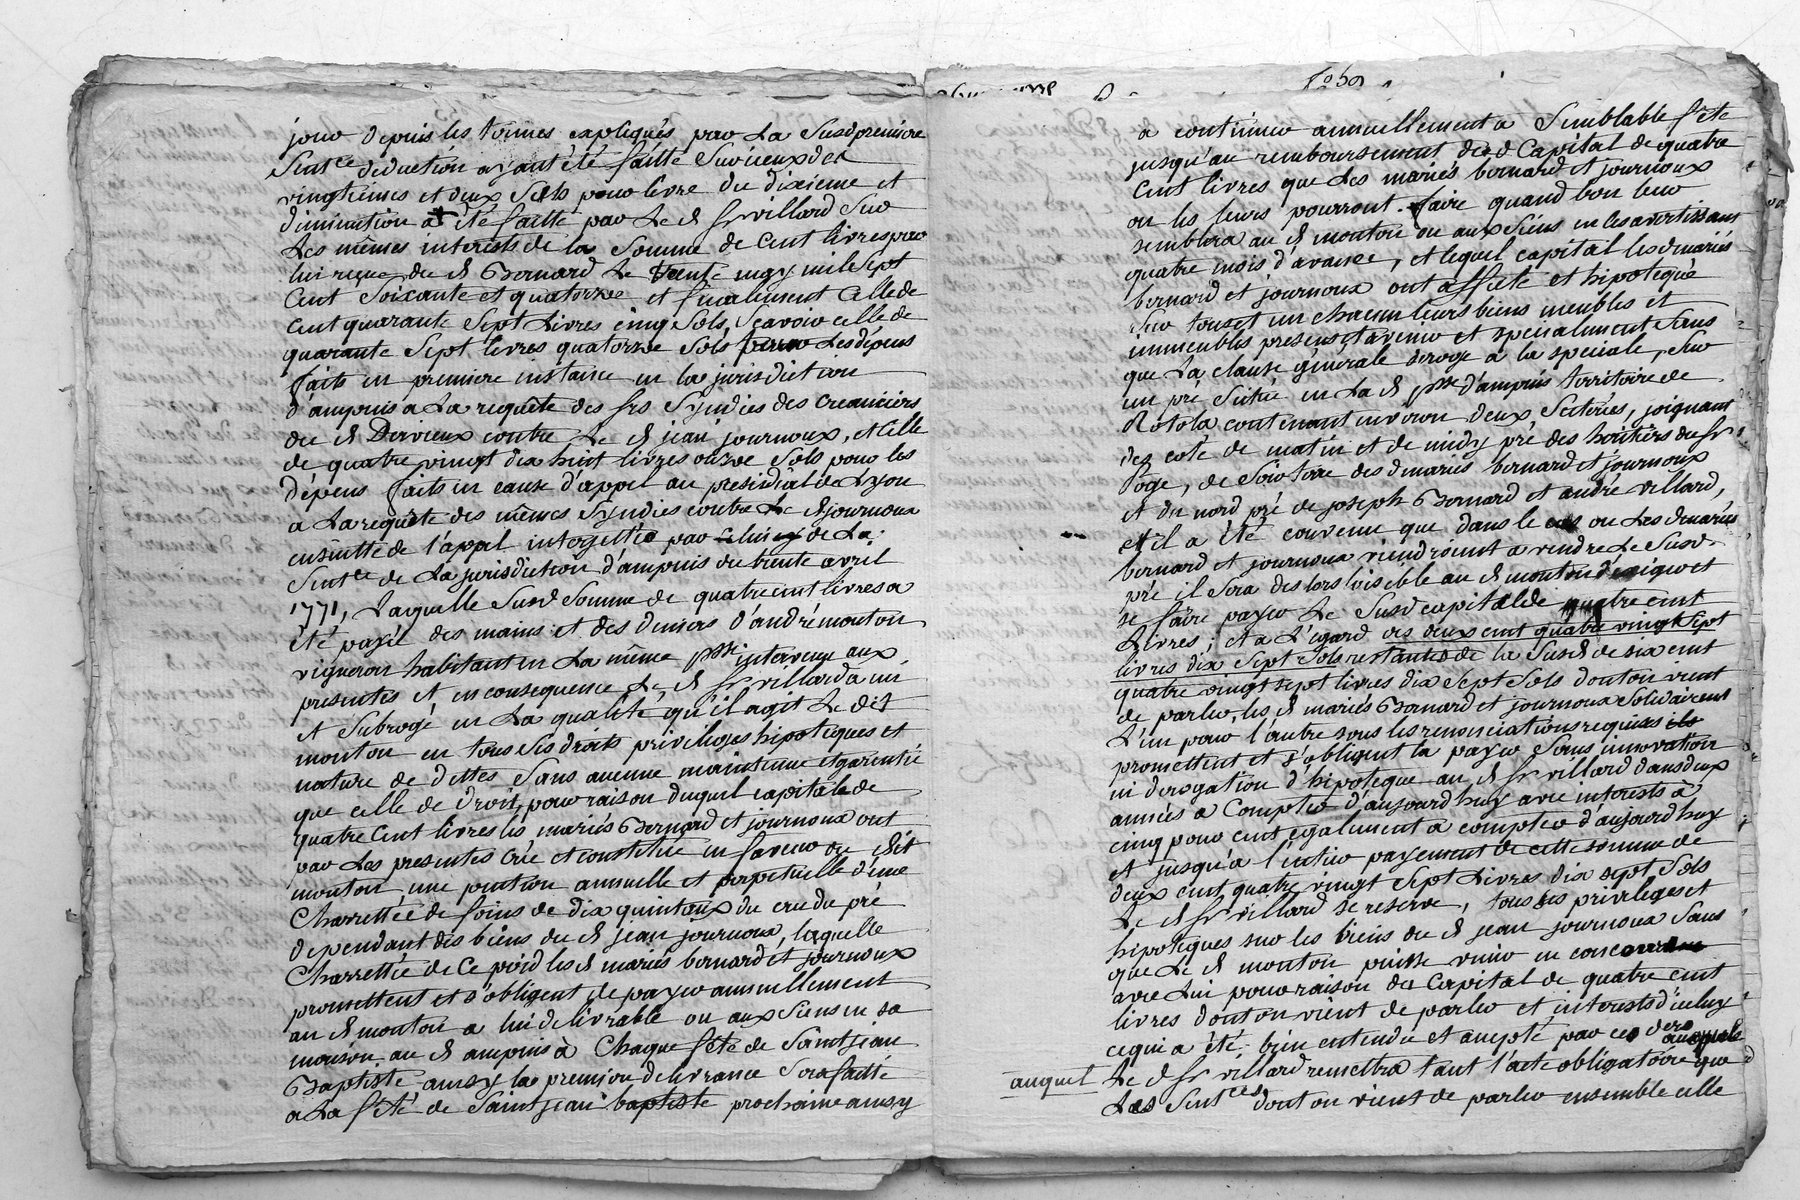 jour depuis les termes expliqués par La Susd premiere
Sentce deduction ayant été faitte Sur iceux des
vingtiemes et deux Sols pour livre du dixieme et
diminution a été faitte par Le d Sr villard Sur
Les mêmes interests de la Somme de Cent livres par
lui reçue du d Bernard Le trente may mil Sept
Cent Soixante et quatorze et finalement Celle de
Cent quarante Sept Livres cinq Sols, Sçavoir celle de
quarante Sept livres quatorze Sols pour Les dépens
faits en premiere instance en la jurisdiction
d'ampuis a La requête des srs Syndics des creanciers
du d Dervieux contre Le d jean journoux, et Celle
de quatre vingt dix huit livres onze Sols pour les
dépens faits en cause d'appel au presidial de Lyon
a La requête des mêmes Syndics contre Le d journoux
ensuitte de l'appel interjetté par celui cy de La
Sentce de La jurisdiction d'ampuis du trente avril
1771, Laquelle Susd Somme de quatre cent livres a
été payée des mains et des deniers d'andré mouton
vigneron habitant en La même psse intervenu aux
presentes et en consequence Le d Sr villard a mis
et Subrogé en La qualité qu'il agit Le dit
mouton en tous Ses droits privileges hipoteques et
nature de dettes Sans aucune maintenue et garentie
que celle de Droit, pour raison duquel capital de
quatre Cent livres les mariés Bernard et journoux ont
par Les presentes Crée et constitué en faveur du dit
mouton, une pention annuelle et perpetuelle d'une
Charrettée de foins de dix quintaux du cru du pré
dependant des biens du d jean journoux, laquelle
Charrettée de Ce poid les d mariés bernard et journoux
promettent et s'obligent de payer annuellement
au d mouton a lui delivrable ou aux Siens en sa
maison au d ampuis à Chaque fête de Saint jean
Baptiste ainsy la premiere delivrance Sera faitte
a La fête de Saint jean baptiste prochaine ainsy
a continuer annuellement a Semblable fête
jusqu'au remboursement dud Capital de quatre
Cent livres que Les mariés bernard et journoux
ou les leurs pourront faire quand bon leur
semblera au d mouton ou aux Siens en les avertissant
quatre mois d'avance, et lequel capital les d mariés
bernard et journoux ont assiété et hipotequé
Sur tous et un chacun leurs biens meubles et
immeubles presens et avenir et specialement Sans
que La clause générale deroge à la speciale, Sur
un pré Scitué en La d psse d'ampuis territoire de
Rotola contenant environ deux Seterées, joignant
des coté de matin et de midy pré des heritiers du Sr
Poge, de Soir terre des d mariés bernard et journoux
et du nord pré de joseph Bernard et andré villard,
et il a été convenu que dans le cas ou Les d mariés
bernard et journoux viendroient a vendre Le Susd
pré il Sera des lors loisible au d mouton d'exiger et
se faire payer Le Susd capital de quatre cent
Livres; et a L'égard des deux cent quatre vingt Sept
livres dix Sept Sols restantes de la Susd de six cent
quatre vingt sept livres dix Sept Sols dont on vient
de parler, les d mariés Bernard et journoux Solidairemt
L'un pour l'autre sous les renonciations requises ils
promettent et s'obligent la payer Sans innovation
ni derogation d'hipoteque au d Sr villard dans deux
années a Compter d'aujourd huy avec interests à
cinq pour cent egalement a compter d'aujourd huy
et jusqu'à l'entier payement de cette somme de
deux cent quatre vingt Sept Livres dix sept Sols
Le d Sr villard se reserve, tous ses privileges et
hipoteques sur les biens du d jean journoux Sans
que Le d mouton puisse venir en
avec Lui pour raison du Capital de quatre cent
livres dont on vient de parler et interests d'iceluy
ce qui a été, bien entendu et accepté par ce der
auquel Le d Sr villard remettra tant l'acte obligatoire que
Les Sentces dont on vient de parler ensemble celle